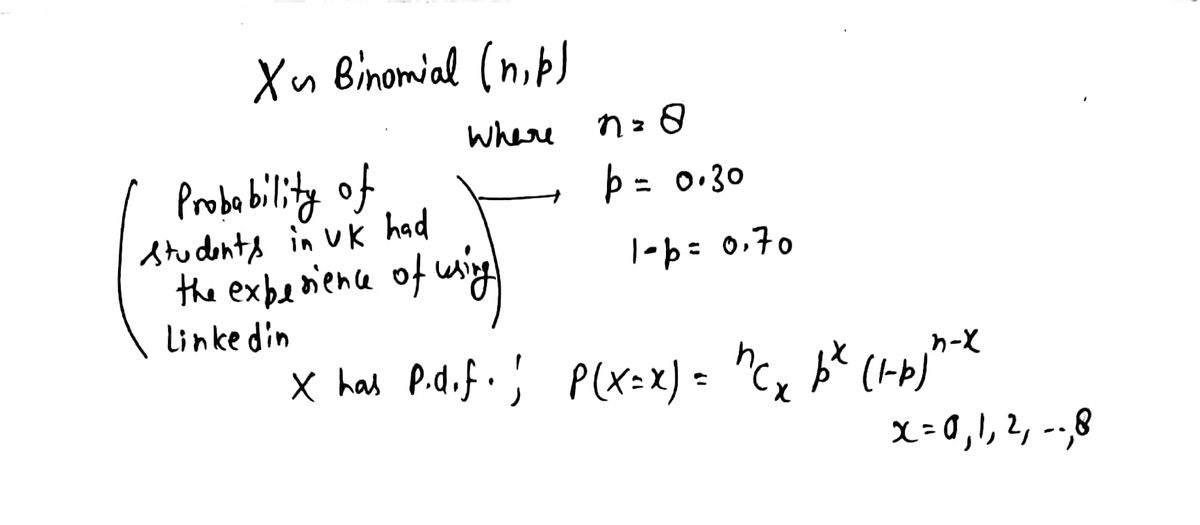 X ~ Binomial (n, p)
where n = 8
Probability of
students in UK had
the experience of using
Linkedin
→ p = 0.30
1-p = 0.70
X has P.d.f. ; P(X=x) = ⁿCₓ pˣ (1-p)ⁿ⁻ˣ
x = 0, 1, 2, --, 8